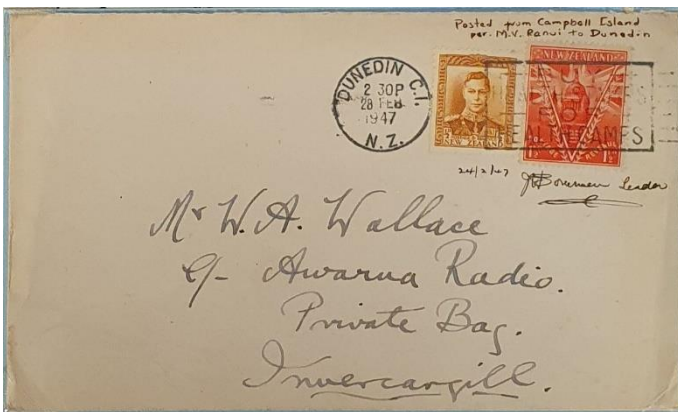 Posted from Campbell Island
per. M.V. Ranui to Dunedin
DUNEDIN C.1.
2 30P
28 FEB
1947
N.Z.
NEW ZEALAND
NEW ZEALAND
1½ 1½
HEALTH CAMPS
24/2/47
Leader
Mr W. A. Wallace
c/- Awarua Radio.
Private Bag.
Invercargill.